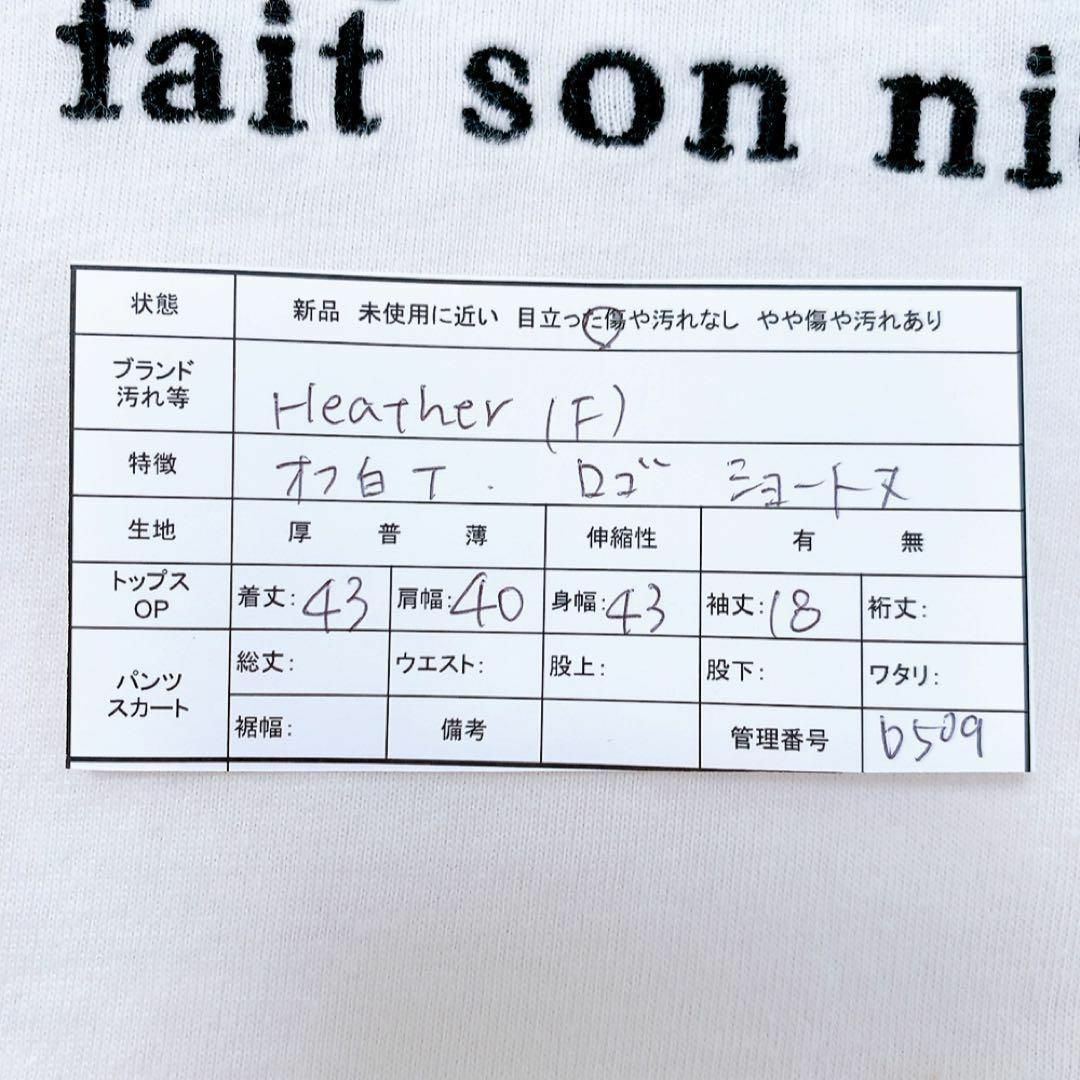 fait son ni
状態 新品 未使用に近い 目立った傷や汚れなし やや傷や汚れあり
ブランド
汚れ等 Heather (F)
特徴 オフ白T. ロゴ ショートヌ
生地 厚 普 薄 伸縮性 有 無
トップス
OP 着丈:43 肩幅:40 身幅:43 袖丈:18 裄丈:
パンツ
スカート 総丈: ウエスト: 股上: 股下: ワタリ:
裾幅: 備考 管理番号 b509